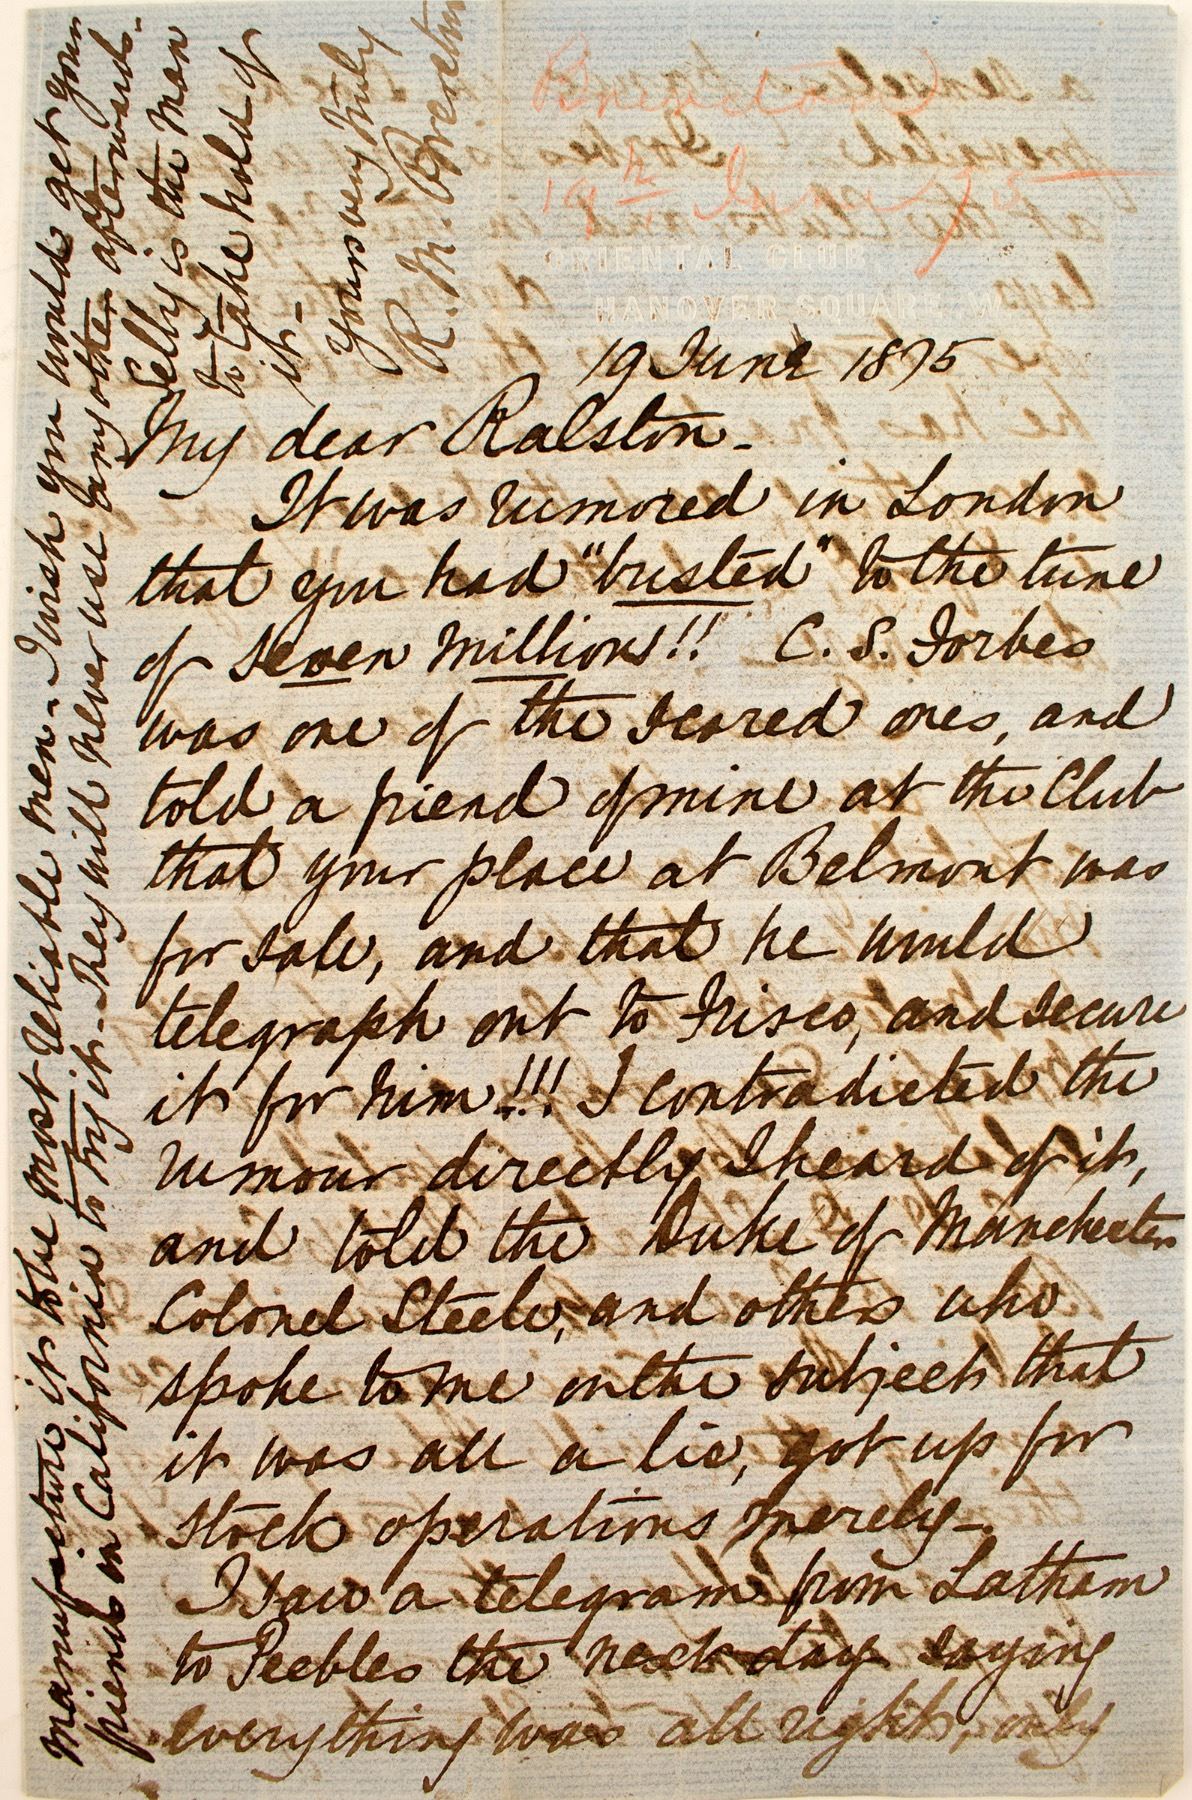 Brereton
19th June 75
ORIENTAL CLUB,
HANOVER SQUARE. W.
19 June 1875
My dear Ralston -
It was rumored in London
that you had "busted" to the tune
of seven millions!! C. S. Forbes
was one of the scared ones, and
told a friend of mine at the Club
that your place at Belmont was
for sale, and that he would
telegraph out to Frisco, and secure
it for him!!! I contradicted the
rumour directly I heard of it,
and told the Duke of Manchester
Colonel Steele, and others who
spoke to me on the subject that
it was all a lie, got up for
stock operations merely -
I saw a telegram from Latham
to Peebles the next day saying
everything was all right, only
manufacture it to be most reliable men - I wish you would get your
friends in California to try it - They will never use any other afterwards -
Selby is the man
to take hold of
it -
Yours very truly
R. M. Brereton